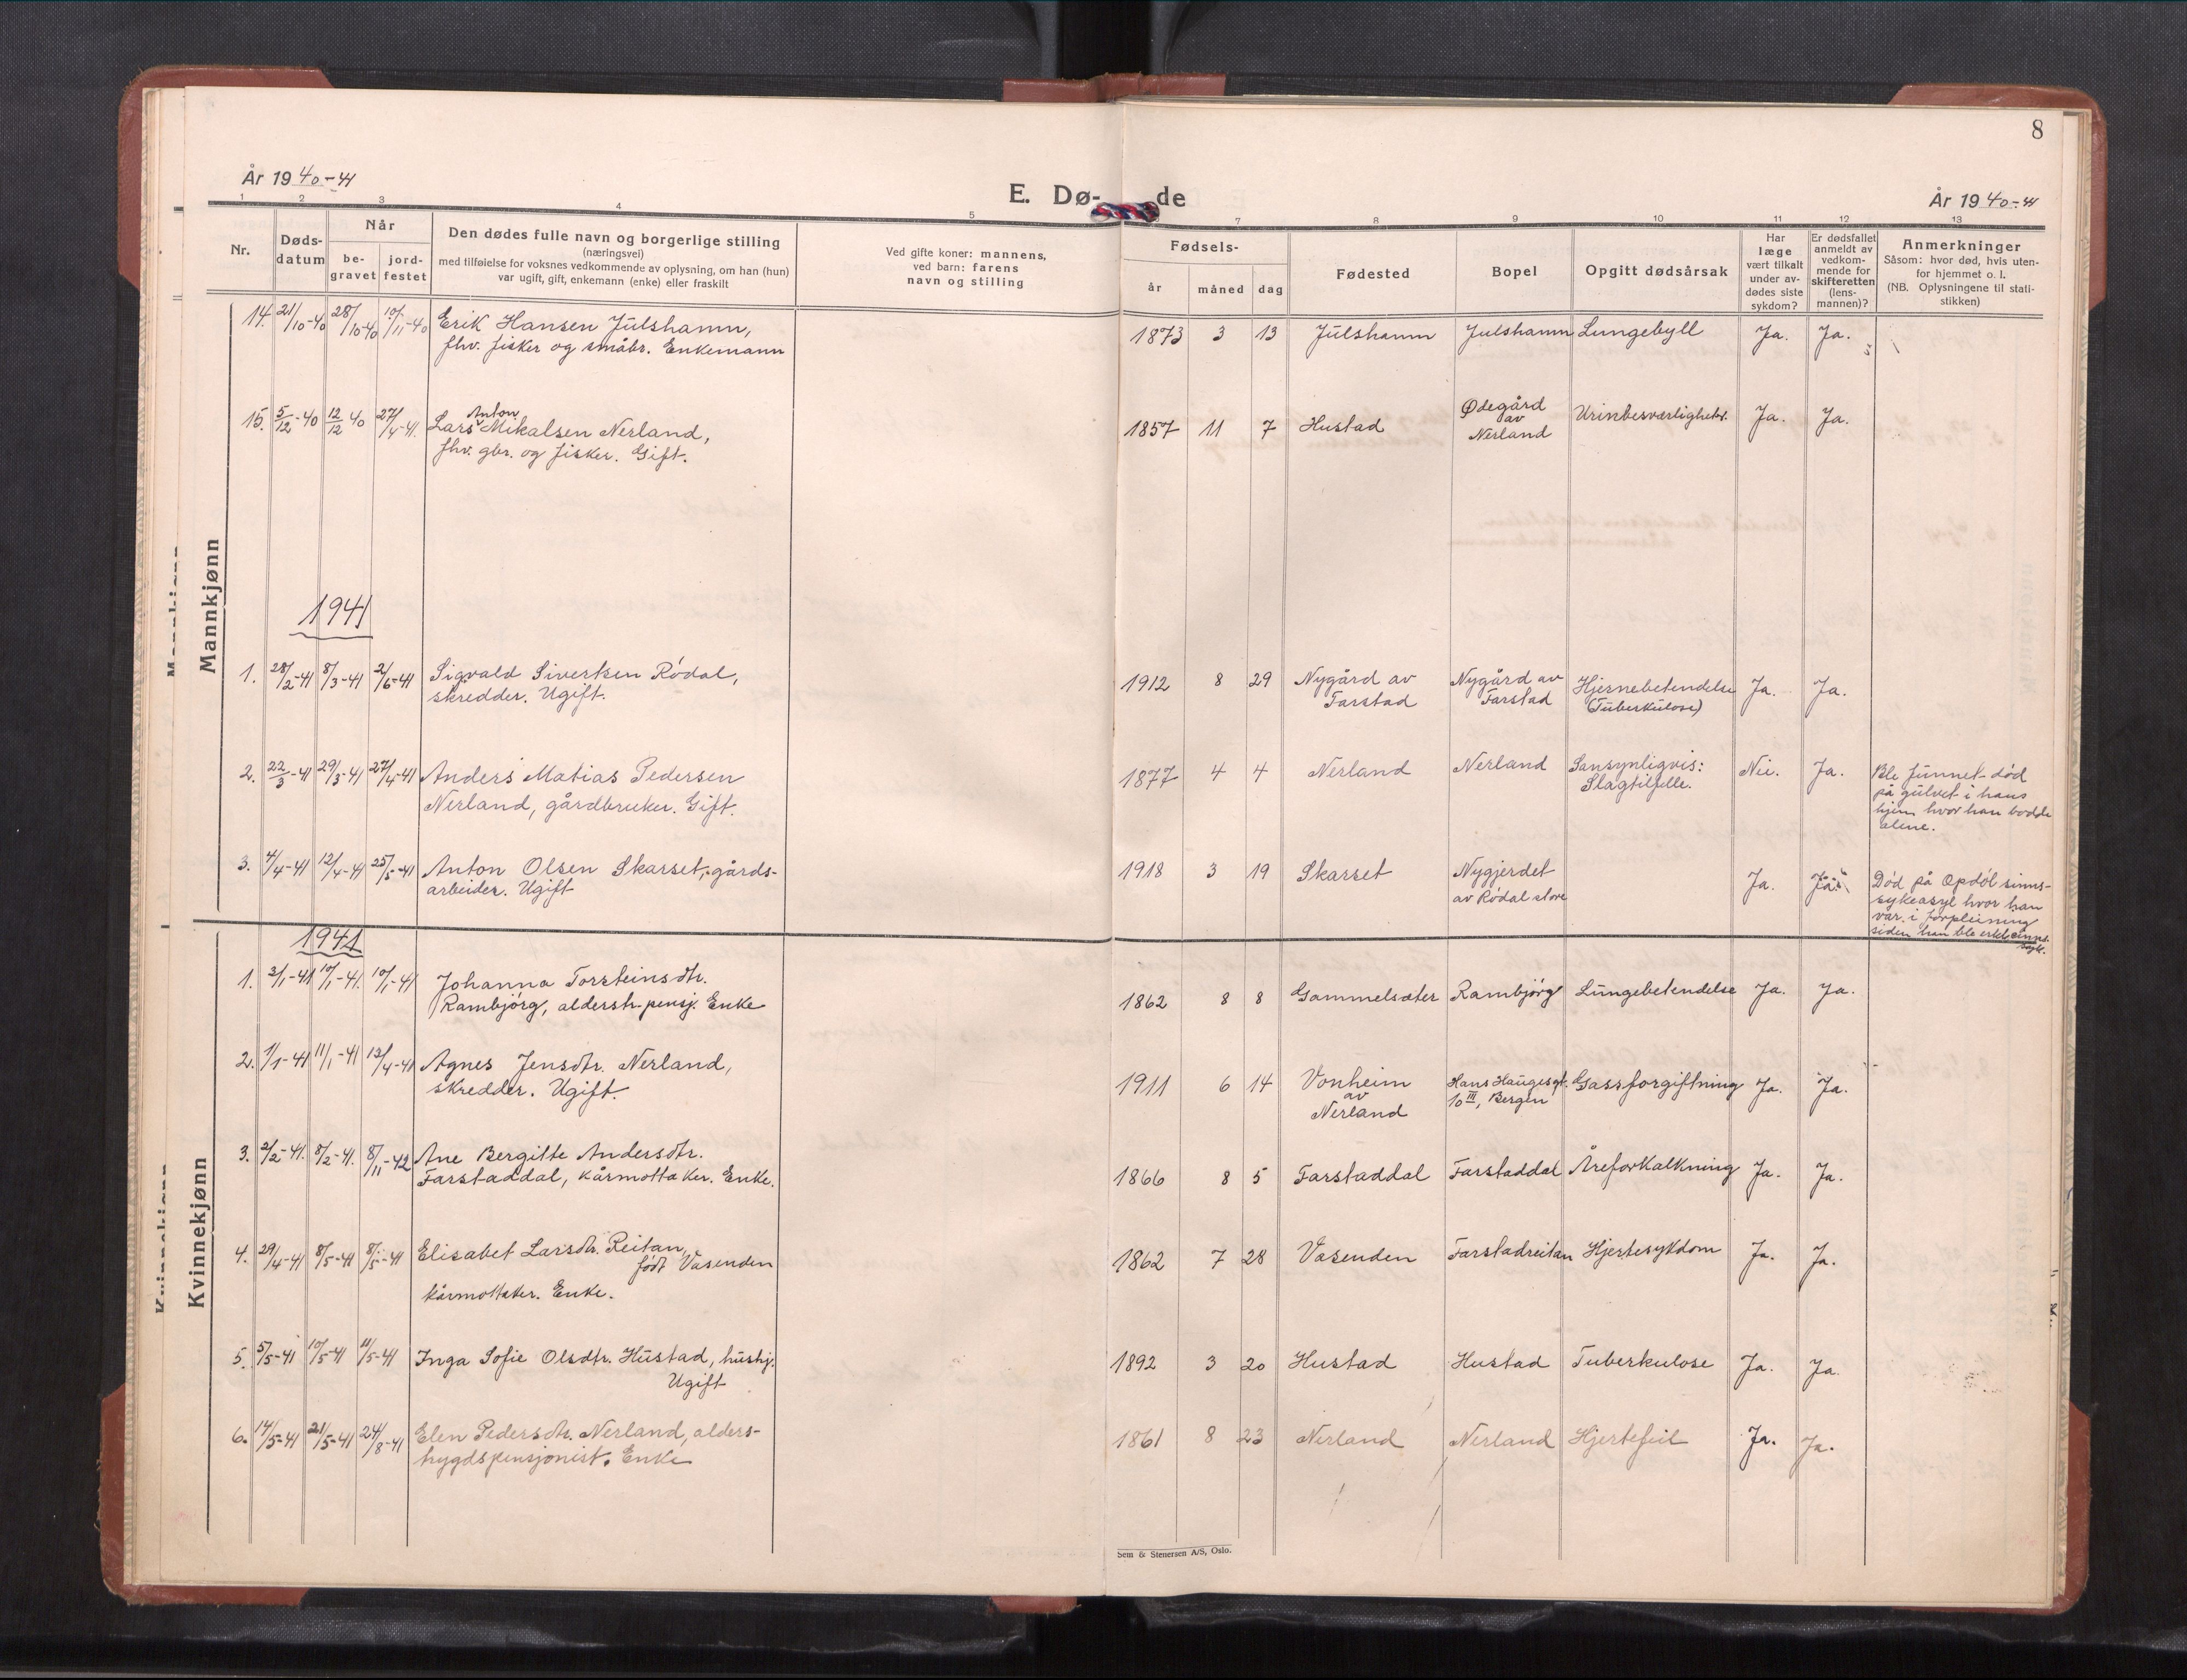 8
År 1940-41
E. Dø- de
År 1940-41
1 2 3 4 5 7 8 9 10 11 12 13
Nr.
Døds-
datum
Når
be-
gravet
jord-
festet
Den dødes fulle navn og borgerlige stilling
(næringsvei)
med tilføielse for voksnes vedkommende av oplysning, om han (hun)
var ugift, gift, enkemann (enke) eller fraskilt
Ved gifte koner: mannens,
ved barn: farens
navn og stilling
Fødsels-
år måned dag
Fødested
Bopel
Opgitt dødsårsak
Har
læge
vært tilkalt
under av-
dødes siste
sykdom?
Er dødsfallet
anmeldt av
vedkom-
mende for
skifteretten
(lens-
mannen)?
Anmerkninger
Såsom: hvor død, hvis uten-
for hjemmet o. l.
(NB. Oplysningene til stati-
stikken)
Mannkjønn
14. 21/10-40 28/10-40 10/11-40 Erik Hansen Julshamn, 1873 3 13 Julshamn Julshamn Lungebyll Ja. Ja.
fhv. fisker og småbr. Enkemann
Anton
15. 5/12-40 12/12 40 27/4-41. Lars Mikalsen Nerland, 1857 11 7 Hustad Ødegård av Nerland Urinbesværligheter. Ja. Ja.
fhv. gbr. og fisker. Gift.
1941
1. 28/2-41 8/3-41 2/6-41 Sigvald Sivertsen Rødal, 1912 8 29 Nygård av Nygård av Hjernebetendelse Ja. Ja.
skredder. Ugift. Farstad Farstad (Tuberkulose)
2. 22/3-41 29/3-41 27/4-41 Anders Matias Pedersen 1877 4 4 Nerland Nerland Sansynligvis: Nei. Ja. Ble funnet død
Nerland, gårdbruker. Gift. Slagtilfelle. på gulvet i hans
hjem hvor han bodde
alene.
3. 4/4-41 12/4-41 25/5-41 Anton Olsen Skarset, gårds- 1918 3 19 Skarset Nygjerdet Ja. Ja. Død på Opdøl sinns-
arbeider. Ugift av Rødal store sykeasyl hvor han
var i forpleining
siden han ble erkl. sinns-
syk.
Kvinnekjønn
1941
1. 2/1-41 10/1-41. 10/1-41 Johanna Torsteinsdtr. 1862 8 8 Gammelsæter Rambjørg Lungebetendelse Ja. Ja.
Rambjørg, alderstr.pensj. Enke
2. 1/1-41 11/1-41 12/4-41 Agnes Jensdtr. Nerland, 1911 6 14 Vonheim Hans Haugesgt. Gassforgiftning Ja. Ja.
skredder. Ugift. av Nerland 10 III, Bergen
3. 2/2-41. 8/2-41. 8/11-42 Ane Bergitte Andersdtr. 1866 8 5 Farstaddal Farstaddal Åreforkalkning Ja. Ja.
Farstaddal, kårmottaker. Enke.
4. 29/4-41 8/5-41 8/5-41 Elisabet Larsdtr. Reitan, 1862 7 28 Vasenden Farstadreitan Hjertesykdom Ja. Ja.
født Vasenden
kårmottaker. Enke.
5. 5/5-41 10/5-41 11/5-41 Inga Sofie Olsdtr. Hustad, hushj. 1892 3 20 Hustad Hustad Tuberkulose Ja. Ja.
Ugift
6. 14/5-41 21/5-41 24/8-41 Elen Pedersdtr. Nerland, alders- 1861 8 23 Nerland Nerland Hjertefeil Ja. Ja.
trygdspensjonist. Enke
Sem & Stenersen A/S, Oslo.